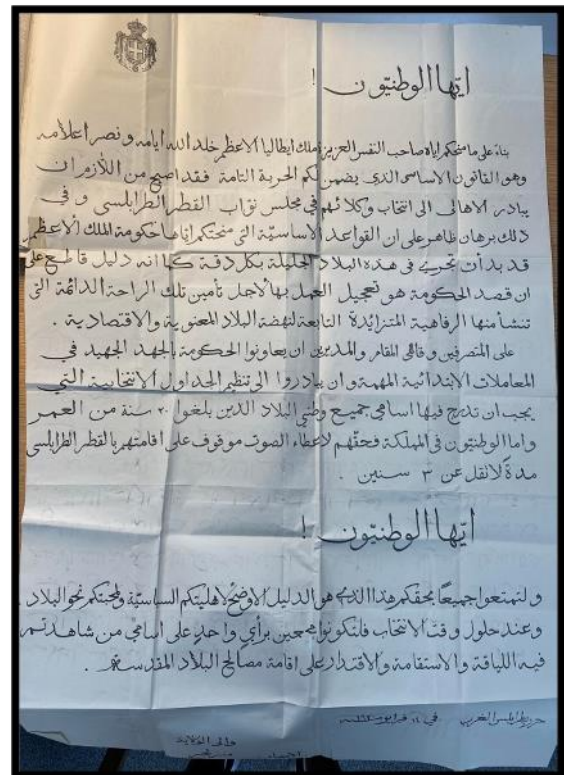 ايّها الوطنيّون !
بناءً على ما منحكم اياه صاحب النفس العزيز ملك ايطاليا الاعظم خلد الله ايامه ونصر اعلامه
وهو القانون الاساسي الذي يضمن لكم الحرية التامة فقد اصبح من اللّازم ان
يبادر الاهالى الى انتخاب وكلائهم في مجلس نوّاب القطر الطرابلسى وفي
ذلك برهان ظاهر على ان القواعد الاساسيّة التى منحتكم اياها حكومة الملك الأعظم
قد بدأت تجرى في هذه البلاد الجليلة بكل دقة كما انه دليل قاطع على
ان قصد الحكومة هو تعجيل العمل بها لأجل تأمين تلك الراحة الدائمة التى
تنشأ منها الرفاهية المتزائدة التابعة لنهضة البلاد المعنوية والاقتصادية .
على المتصرفين وقائمى المقام والمديرين ان يعاونوا الحكومة بالجهد الجهيد في
المعاملات الابتدائية المهمة وان يبادروا الى تنظيم الجداول الانتخابية التي
يجب ان تدرج فيها اسامي جميع وطني البلاد الذين بلغوا ٢٠ سنة من العمر
واما الوطنيّون في المملكة فحقّهم لاعطاء الصوت موقوف على اقامتهم بالقطر الطرابلسى
مدةً لا تقل عن ٣ سنين .
ايّها الوطنيّون !
ولتمتعوا جميعاً بحقكم هذا الذي هو الدليل الاوضح لاهليتكم السياسيّة ولمحبتكم نحو البلاد .
وعند حلول وقت الانتخاب فلتكونوا مجمعين برأي واحد على اسامي من شاهدتم
فيه اللياقة والاستقامة والاقتدار على اقامة مصالح البلاد المقدسة .
حرر بطرابلس الغرب في فبرايو
والى الولاية